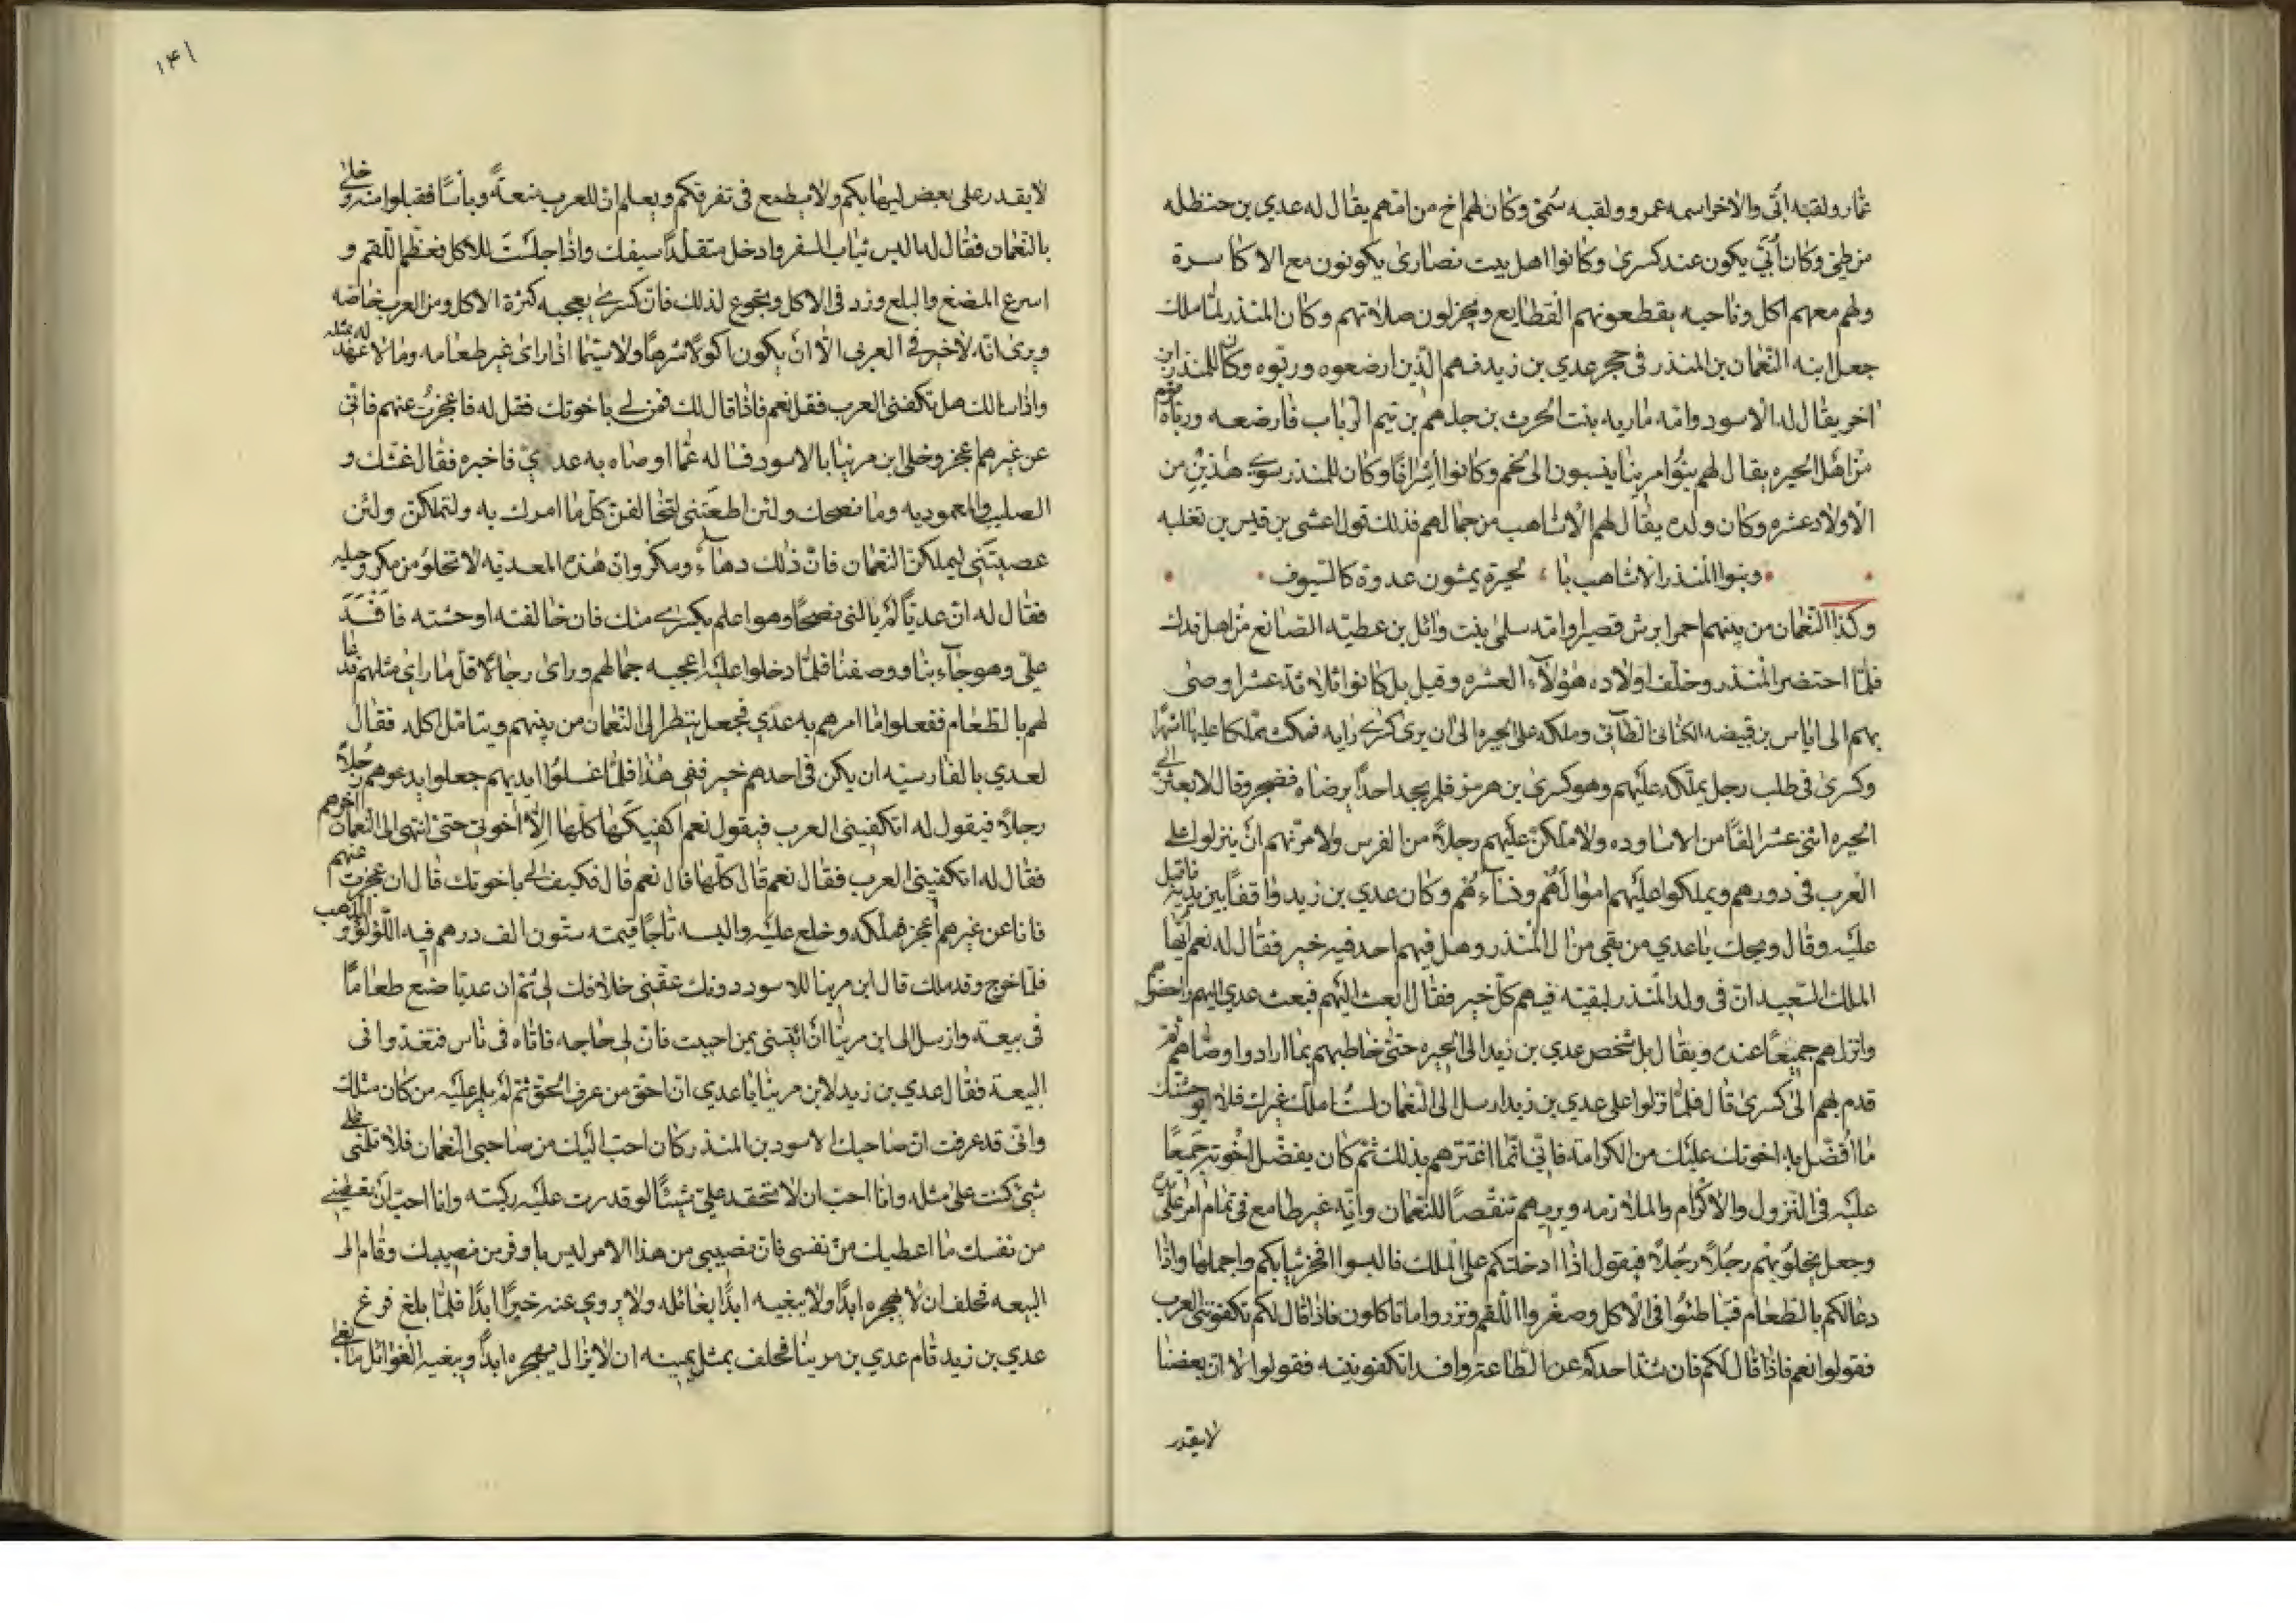 عمار ولقبه ابّي والاخر اسمه عمرو ولقبه سُمىّ وكان لهم اخ من امّهم يقال له عدي بن حنظله
من طيئ وكان أُبّي يكون عند كسرى وكانوا اهل بيت نصارى يكونون مع الاكاسرة
ولهم معهم اكل وناحيه يقطعونهم القطايع ويجزلون صلاتهم وكان المنذر لمّا ملك
جعل ابنه النّعمان بن المنذر فى حجر عدي بن زيد فهم الّذين ارضعوه وربّوه وكان للمنذر ابن
اخر يقال له الاسود وامّه ماريه بنت الحرث بن جلهم بن تيم الرّباب فارضعه وربّاه قوم
من اهل الحيره يقال لهم بنوا مرينا ينسبون الى لخم وكانوا اشرافًا وكان للمنذر سوى هذين من
الاولاد عشره وكان ولده يقال لهم الاشاهب من جمالهم فذلك قول اعشى بن قيس بن ثعلبه
وبنوا المنذر الاشاهب بالحيرة يمشون عدوة كالسّيوف
وكذا النّعمان من بينهم احمر ابرش قصيرا وامّه سلمى بنت وائل بن عطيّه الصّانع من اهل فدك
فلمّا احتضر المنذر وخلّف اولاده هؤلآء العشره وقيل بل كانوا ثلاثة عشر اوصى
بهم الى اياس بن قبيصه الطّآئى وملكه على الحيره الى ان يرى كسرى رايه فمكث مملكا عليها اشهرًا
وكسرى فى طلب رجل يملّكه عليهم وهو كسرى بن هرمز فلم يجد احدًا يرضاه فضجر وقال لابعثنّ الى
الحيره اثنى عشر الفًا من الاساوده ولاملّكنّ عليهم رجلاً من الفرس ولامرنّهم ان ينزلوا على
العرب فى دورهم ويملكوا عليهم اموالهم ونسآءهم وكان عدي بن زيد واقفًا بين يديه فاقبل
عليه وقال ويحك يا عدي من بقى من ال المنذر وهل فيهم احد فيه خير فقال له نعم ايّها
الملك السّعيد انّ فى ولد المنذر لبقيّه فيهم كلّ خير فقال ابعث اليهم فبعث عدي اليهم واحضرهم
وانزلهم جميعًا عنده ويقال بل شخص عدي بن زيد الى الحيره حتّى خاطبهم بما ارادوا وصّاهم ثم
قدم بهم الى كسرى قال فلمّا نزلوا على عدي بن زيد ارسل الى النّعمان لست املك غيرك فلا يوحشنك
ما اُفضّل به اخوتك عليك من الكرامة فانّى انّما اغترّهم بذلك ثمّ كان يفضّل اخوته جميعًا
عليه فى النّزول والاكرام والملازمه ويريهم تنقّصًا للنّعمان وانّه غير طامع فى تمام امر على يده
وجعل يخلوا بهم رجُلاً رجُلاً فيقول اذا ادخلتكم على الملك فالبسوا افخر ثيابكم واجملها واذا
دعا لكم بالطّعام فتباطئوا فى الاكل وصغّروا اللّقم ونزروا ما تاكلون فاذا قال لكم تكفونني العرب
فقولوا نعم فاذا قال لكم فان شذّ احدكم عن الطّاعة وافسد اتكفوننيه فقولوا لا انّ بعضنا
لايقدر
١٤١
لا يقدر على بعض ليهابكم ولا يطمع فى تفرقكم ويعلم انّ للعرب منعةً وبأسًا فقبلوا منه وخلى
بالنّعمان فقال له البس ثياب السفر وادخل متقلّدًا سيفك واذا جلست للاكل فعظّم اللّقم و
اسرع المضغ والبلع وزد فى الاكل وتجوع لذلك فان كسرى يعجبه كثرة الاكل ومن العرب خاصّه
ويرى انّه لا خير فى العربى الاّ ان يكون اكولاً شرهًا ولا سيّما اذا راى غير طعامه وما لا عهد له بمثله
واذا سالك هل تكفنى العرب فقل نعم فاذا قال لك فمن لى باخوتك فقل له فاعجزتُ عنهم فانّى
عن غيرهم اعجز وخلى ابن مرينا بالاسود فساله عمّا اوصاه به عديّ فاخبره فقال غشّك و
الصليب والمعموديه وما نصحك ولئن اطعتنى لتخالفنّ كلّ ما امرك به ولتملكنّ ولئن
عصيتنى ليملكنّ النّعمان فانّ ذلك دهآءٌ ومكر وانّ هذه المعديّه لا تخلوُ من مكر وحيله
فقال له انّ عديّاً لم يالنى نصحًا وهو اعلم بكسرى منك فان خالفته اوحشته فافسد
علىّ وهو جآء بنا ووصفنا فلمّا دخلوا عليه اعجبه جمالهم وراى رجالاً قلّ ما راى مثلهم فدعا
لهم بالطّعام ففعلوا ما امرهم به عدّي فجعل ينظر الى النّعمان من بينهم ويتامّل اكله فقال
لعدي بالفارسيّه ان يكن فى احدهم خير ففى هذا فلمّا غسلوا ايديهم جعلوا يدعوهم رجُلاً
رجلاً فيقول له اتكفينى العرب فيقول نعم اكفيكها كلّها الاّ اخوتى حتى انتهى الى النّعمان اخرهم
فقال له اتكفينى العرب فقال نعم قال كلّها قال نعم قال فكيف لى باخوتك قال ان عجزت عنهم
فانا عن غيرهم اعجز فملّكه وخلع عليه والبسه تاجًا قيمته ستّون الف درهم فيه اللّؤلؤ والذهب
فلمّا خرج وقد ملك قال ابن مرينا للاسود دونك عقبى خلافك لى ثم ان عديّا صنع طعامًا
فى بيعة وارسل الى ابن مرينا ان ائتنى بمن احببت فانّ لى حاجه فاتاه فى ناس فتغدّوا فى
البيعة فقال عدي بن زيد لابن مرينا يا عدي انّ احقّ من عرف الحقّ ثمّ لم يلم عليه من كان مثلك
وانّى قد عرفت انّ صاحبك الاسود بن المنذر كان احبّ اليك من صاحبى النّعمان فلا تلمنى على
شئ كنت على مثله وانا احبّ ان لا تحقد علىّ شيئًا لو قدرت عليه ركبته وانا احبّ ان تعطينى
من نفسك ما اعطيك من نفسى فانّ نصيبى من هذا الامر ليس باوفر من نصيبك وقام الى
البيعه فحلف ان لا يهجره ابدًا ولا يبغيه ابدًا بغائله ولا يروي عنه خيرًا ابدًا فلمّا بلغ فرغ
عدي بن زيد قام عدي بن مرينا فحلف بمثل يمينه ان لا يزال يهجره ابدًا ويبغيه الغوائل ما بقى